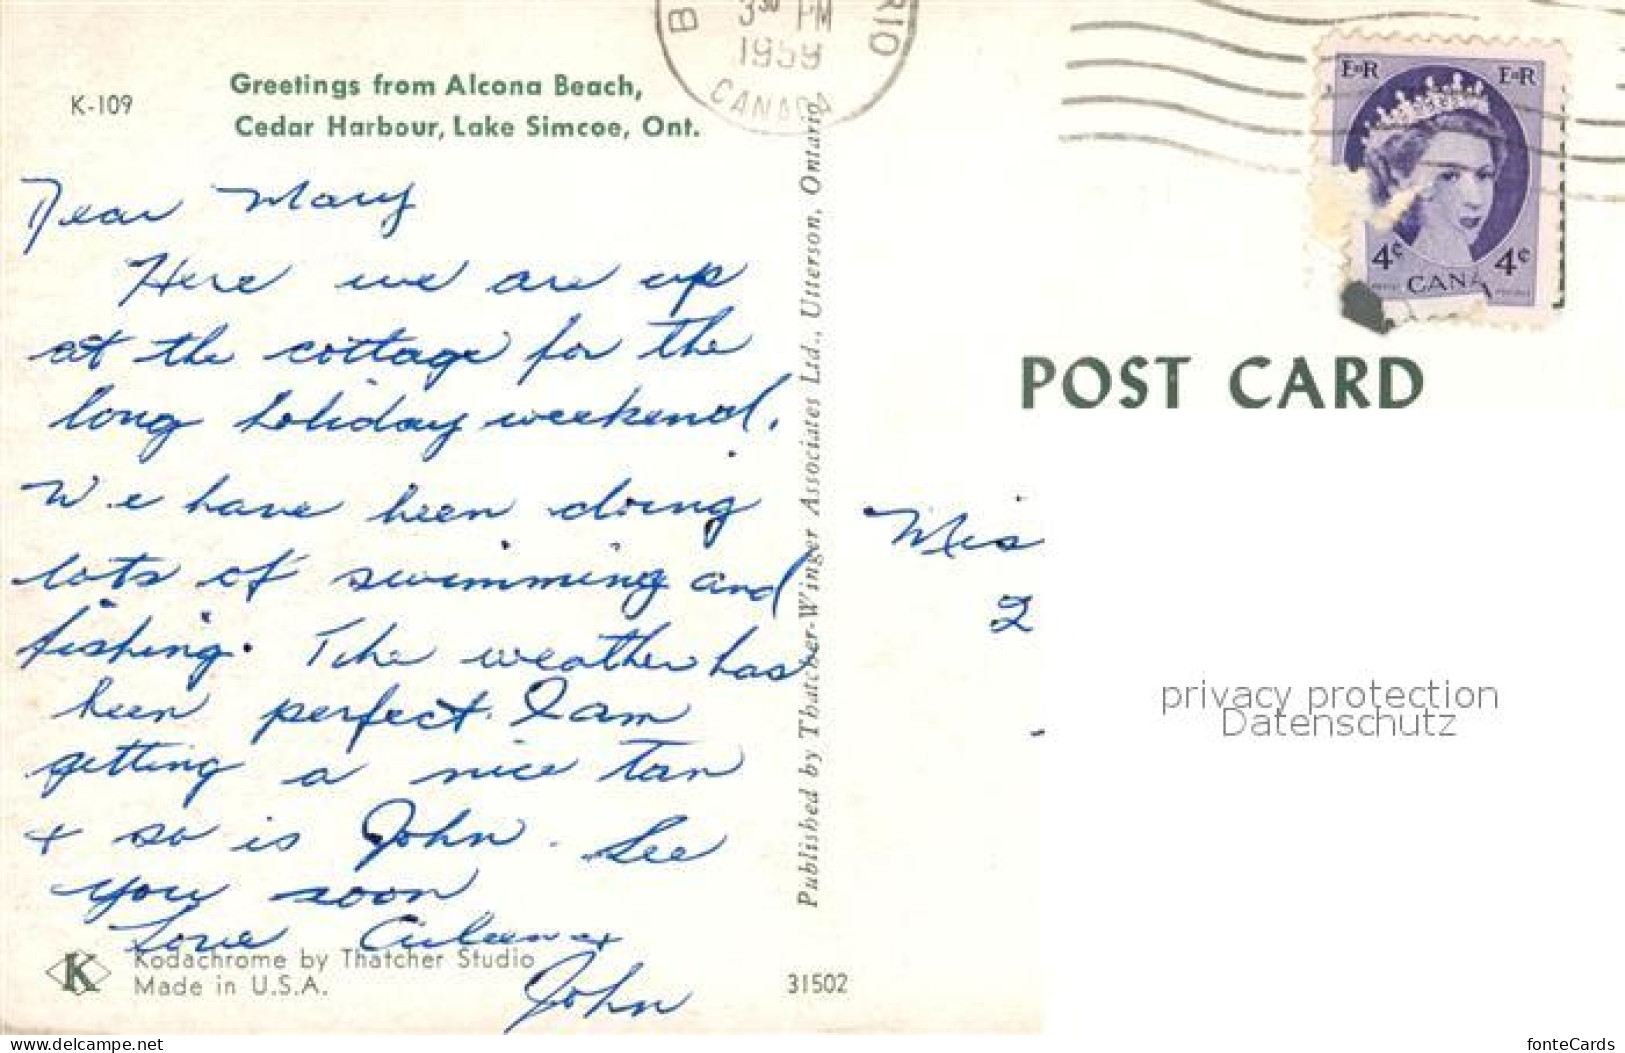 K-109
Greetings from Alcona Beach,
Cedar Harbour, Lake Simcoe, Ont.
Dear Mary
Here we are up
at the cottage for the
long holiday weekend.
We have been doing
lots of swimming and
fishing. The weather has
been perfect. I am
getting a nice tan
+ so is John. See
you soon
Love
John
K
Kodachrome by Thatcher Studio
Made in U.S.A.
31502
Published by Thatcher-Winger Associates Ltd., Utterson, Ontario
3 30 PM
1959
CANADA
E II R
E II R
4¢
4¢
CANA
POST CARD
Mis
2
privacy protection
Datenschutz
www.delcampe.net
fonteCards